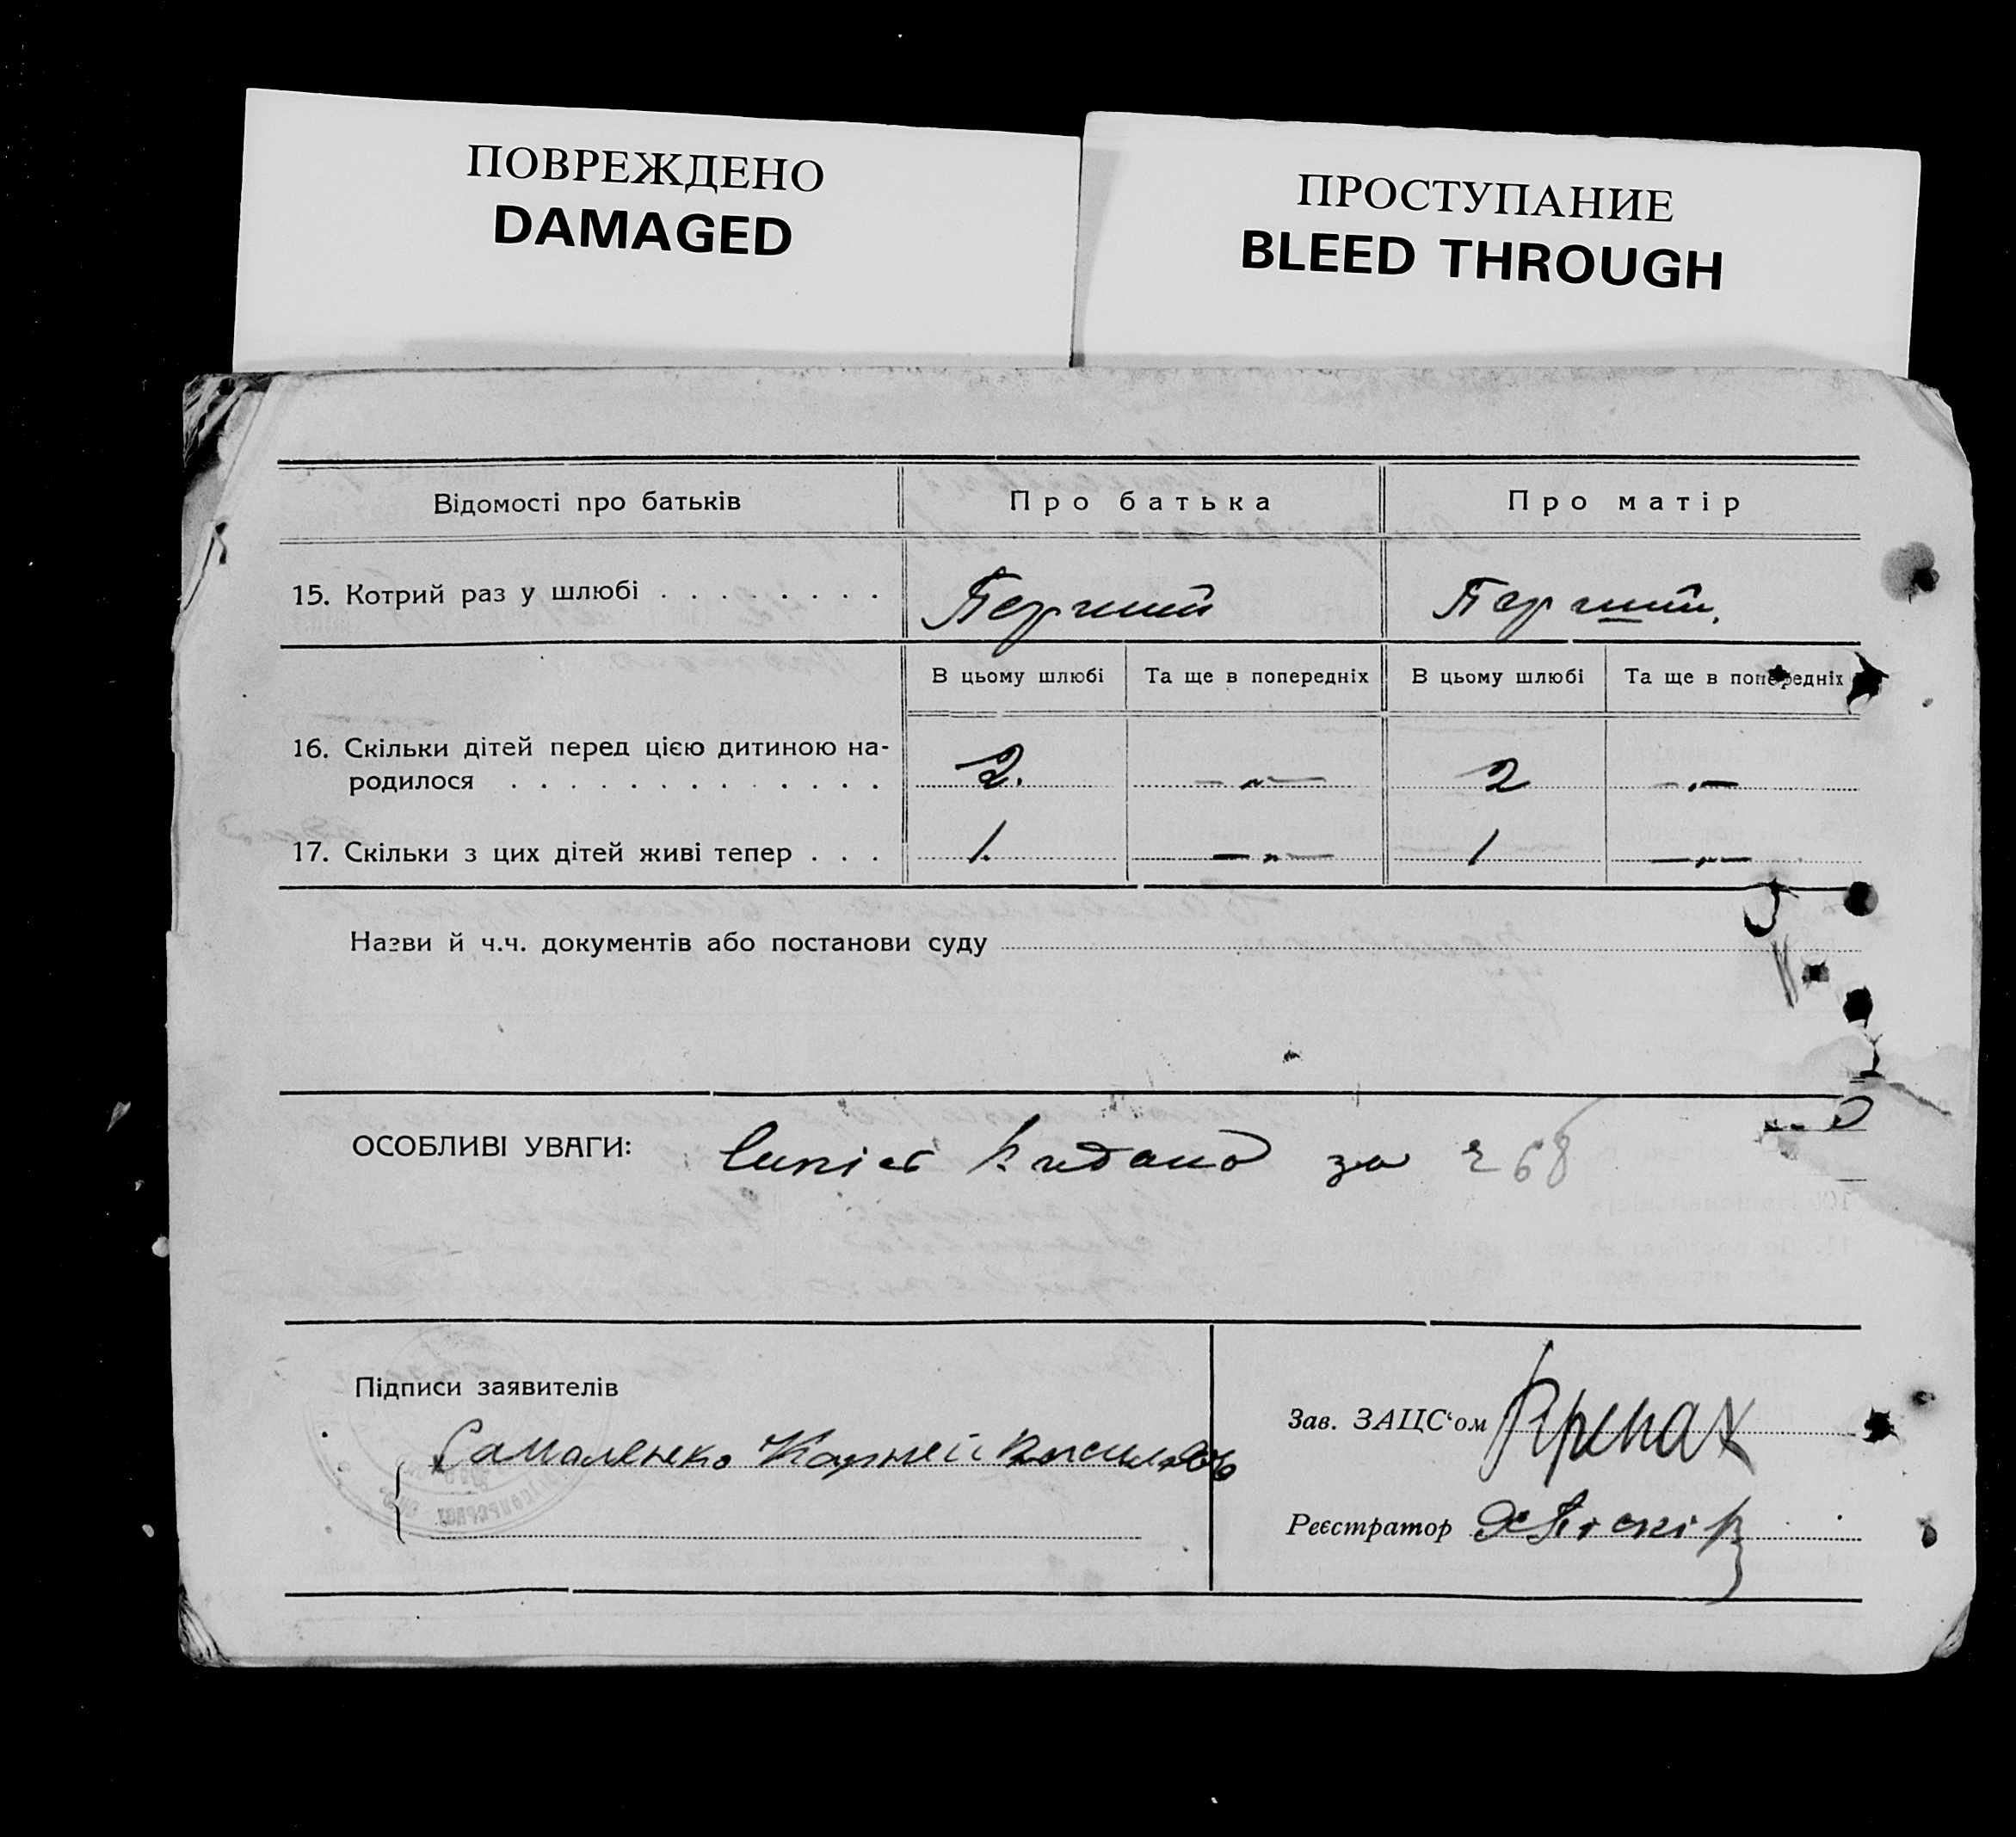 ПОВРЕЖДЕНО
DAMAGED
ПРОСТУПАНИЕ
BLEED THROUGH
Відомості про батьків
Про батька
Про матір
15. Котрий раз у шлюбі . . . . . . . .
Перший
Перший.
В цьому шлюбі
Та ще в попередніх
В цьому шлюбі
Та ще в попередніх
16. Скільки дітей перед цією дитиною на-
родилося . . . . . . . . . . . . .
2.
— „ —
2
— „ —
17. Скільки з цих дітей живі тепер . . .
1.
— „ —
1
— „ —
Назви й ч.ч. документів або постанови суду
ОСОБЛИВІ УВАГИ:
видано за 268
Підписи заявителів
Самаленко Карней Василев
Зав. ЗАЦС‘ом
Реєстратор